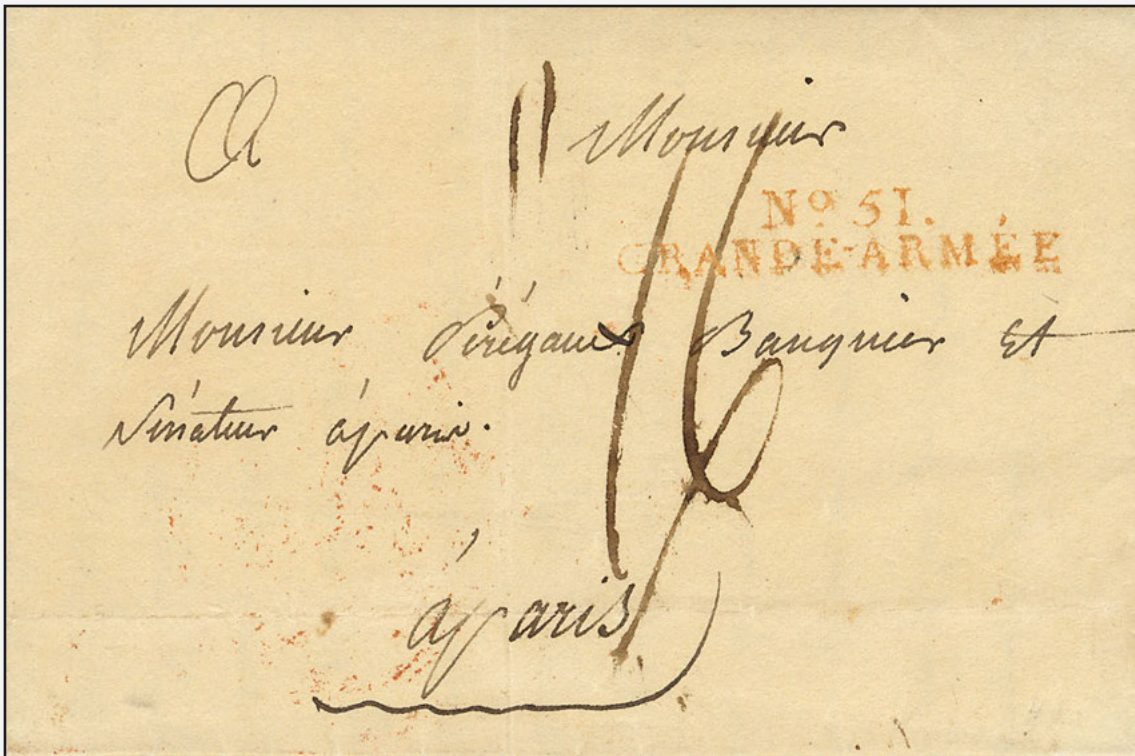 Monsieur
No 51.
GRANDE-ARMÉE
Monsieur Pérégaux Banquier Et
Sénateur áparis.
áparis